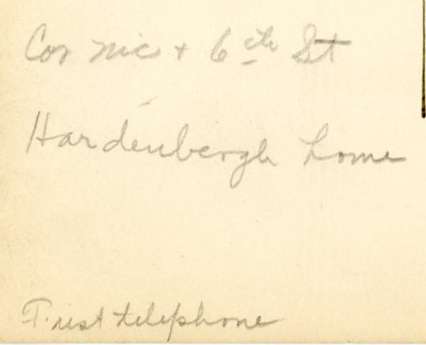 Cor Nic + 6th St
Hardenbergh home
First telephone